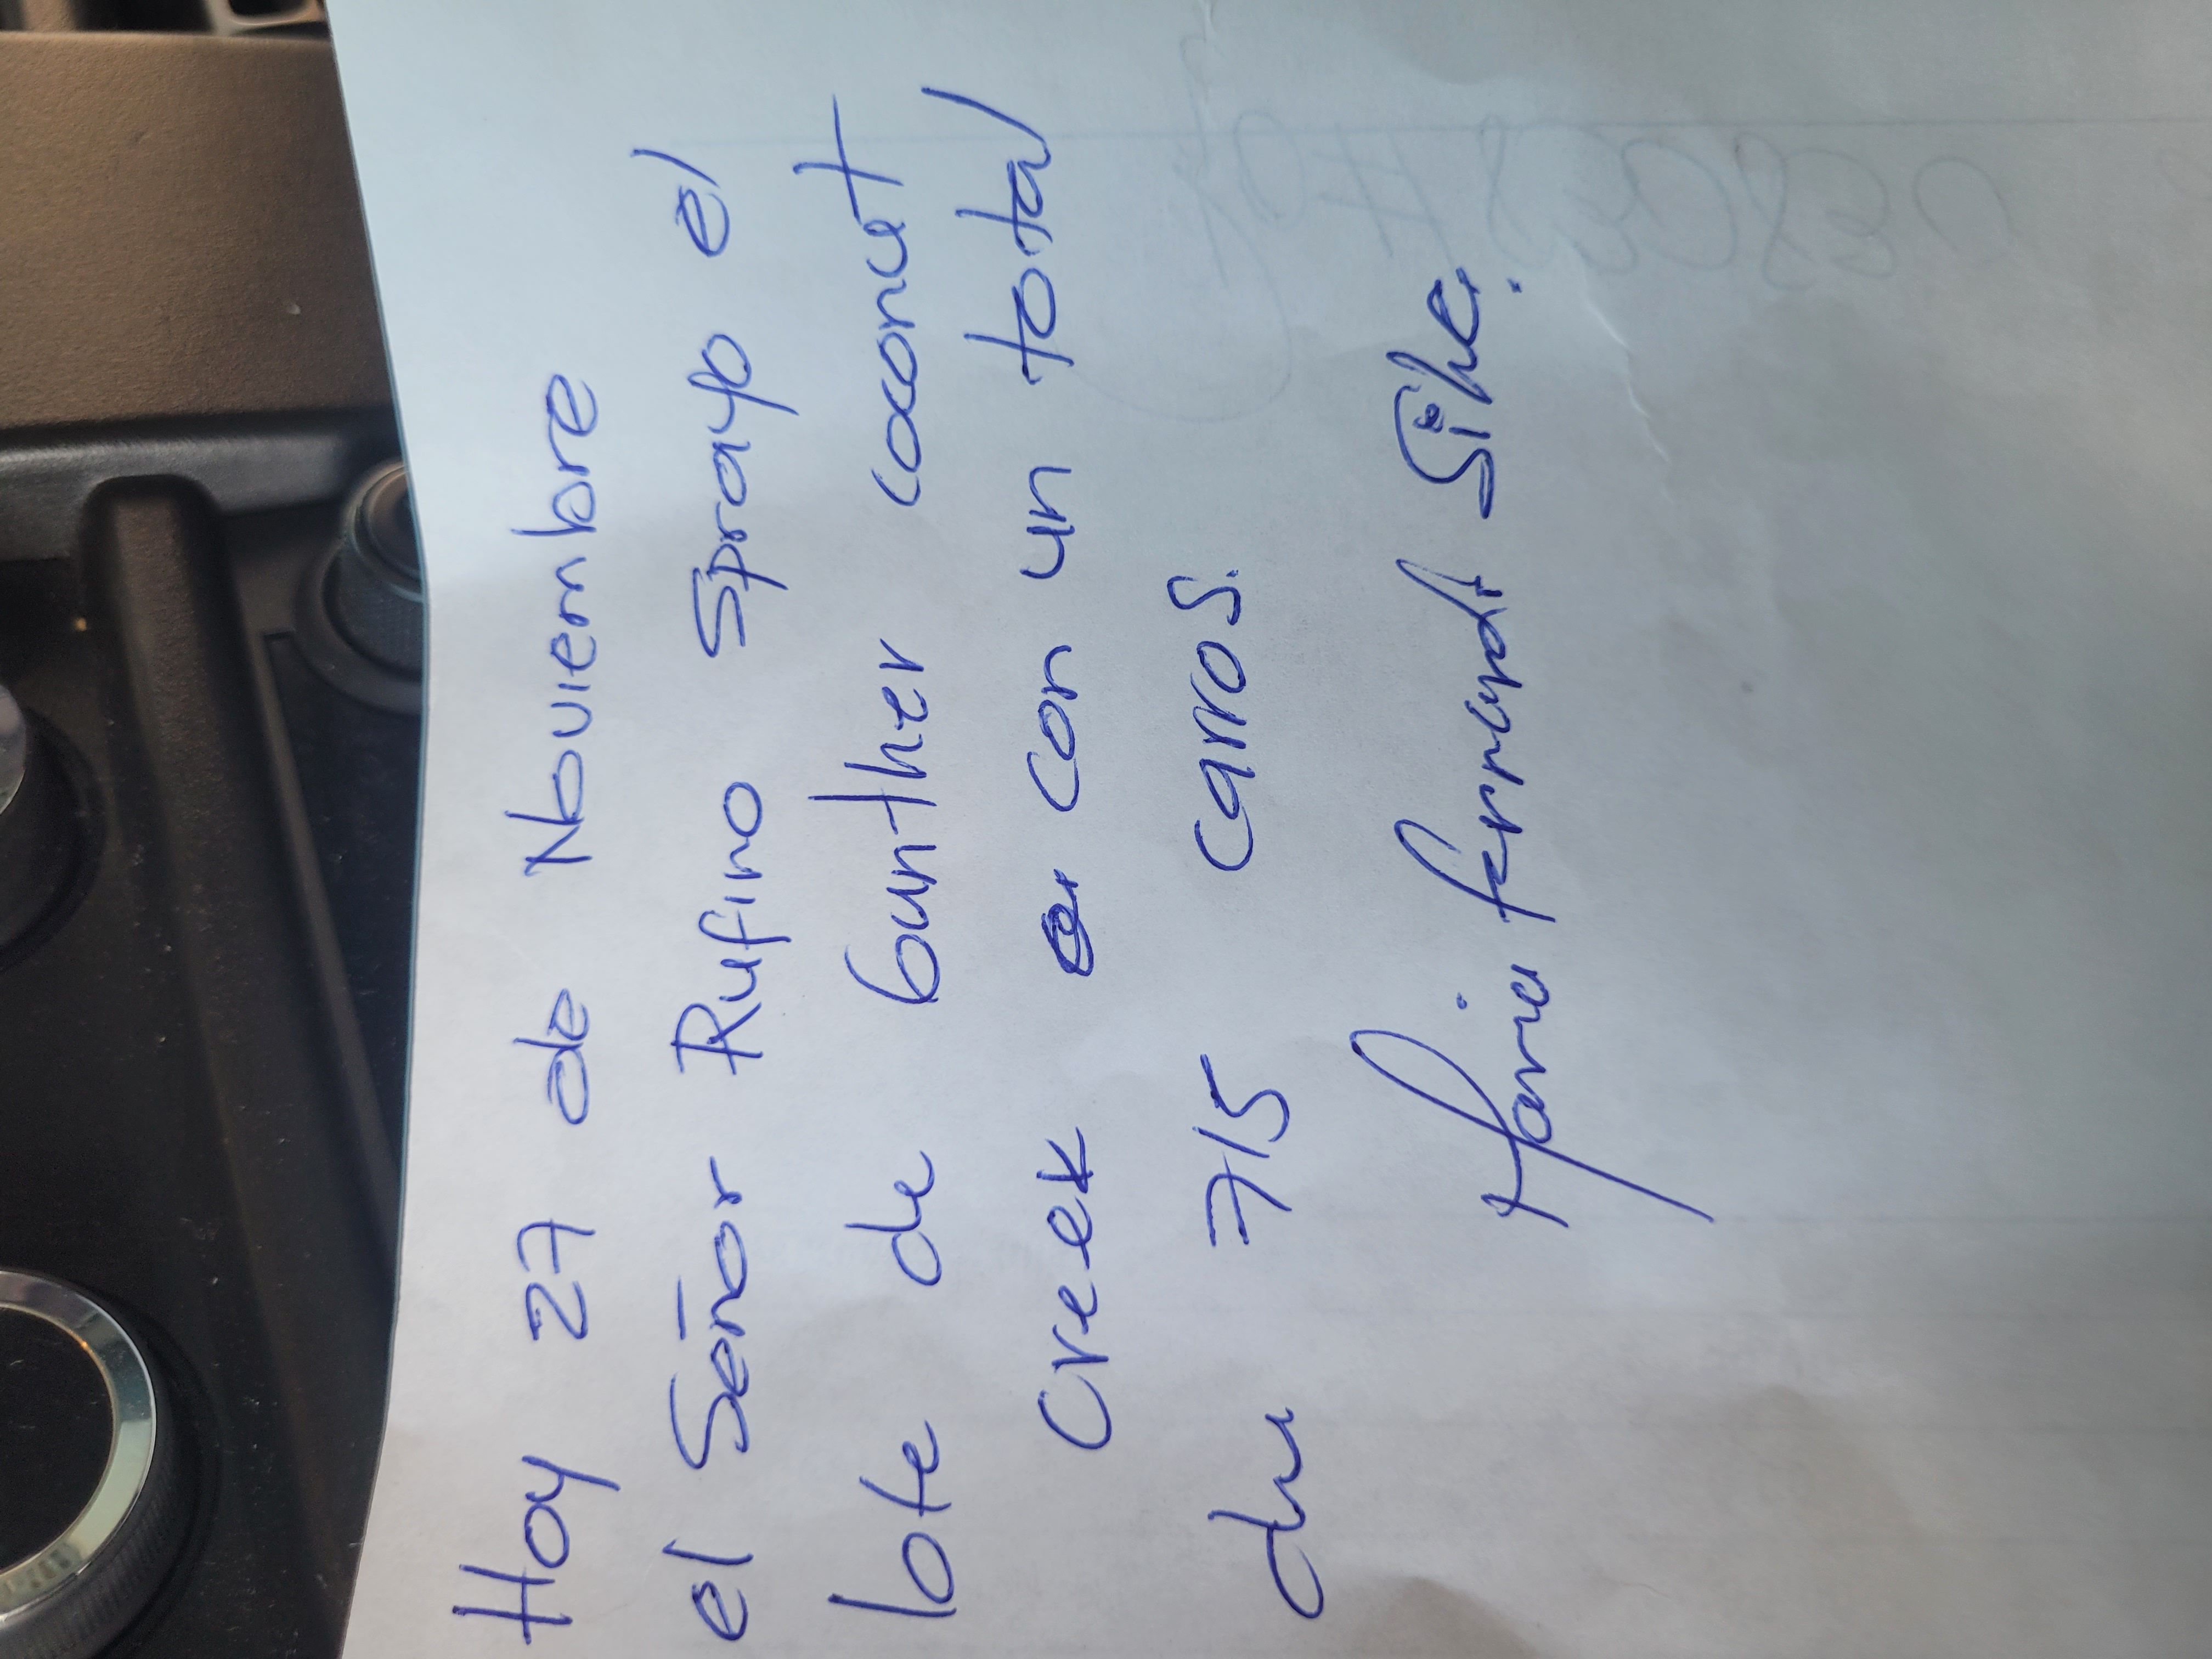 Hoy 27 de Noviembre
el Señor Rufino Sprayo el
lote de Gunther coconut
Creek con un total
de 715 carros.
Maria fernanda Sihe.